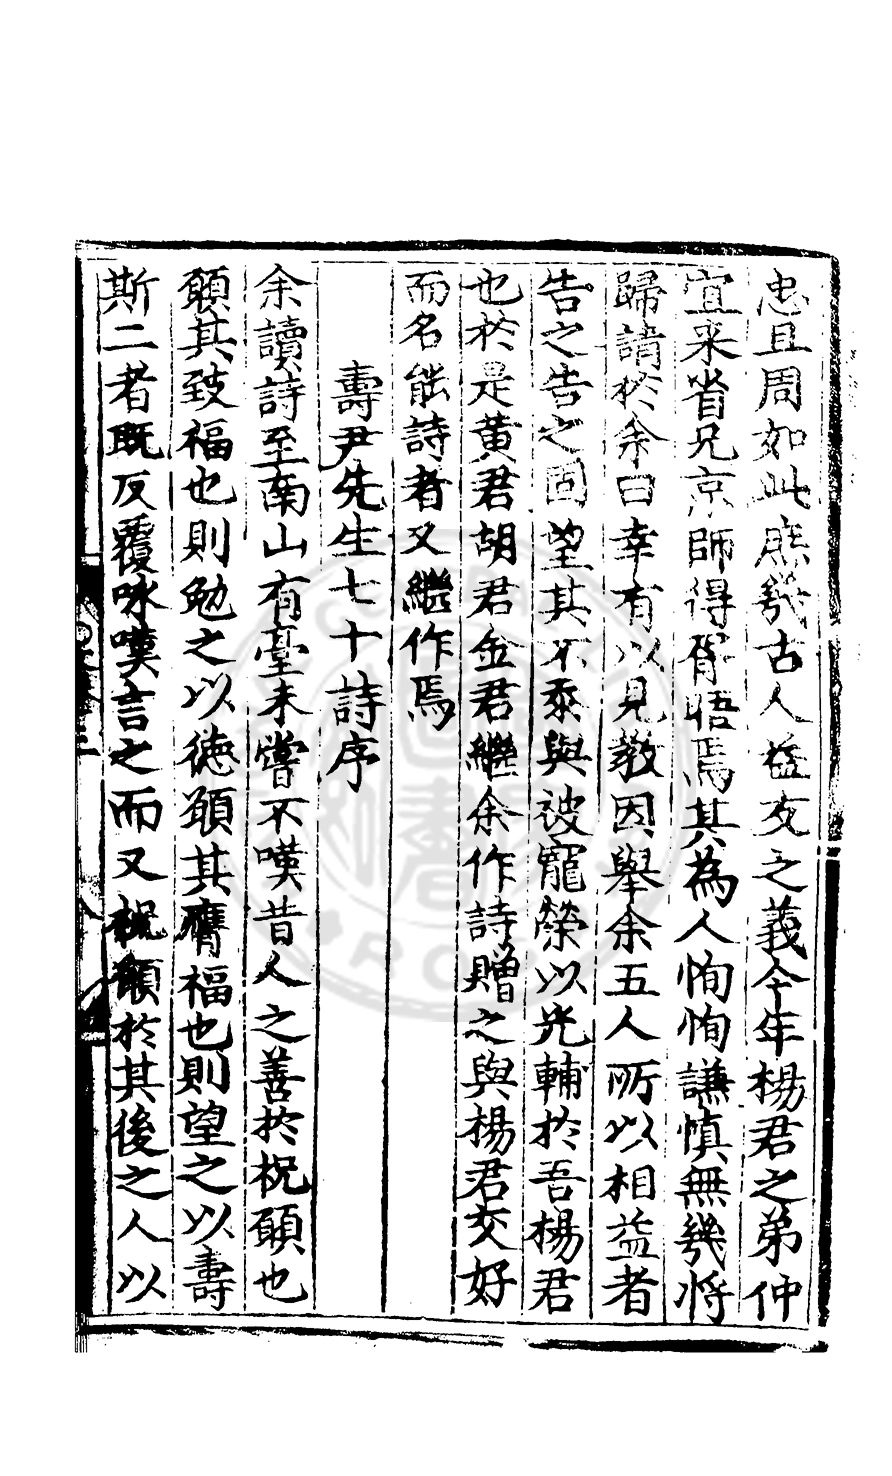 忠且周如此庶幾古人益友之義今年楊君之弟仲
宜来省兄京師得胥悟焉其為人恂恂謙慎無幾将
歸請於余曰幸有以見教因舉余五人所以相益者
告之告之固望其不忝與被寵榮以光輔於吾楊君
也於是黄君胡君金君繼余作詩贈之與楊君交好
而名能詩者又繼作焉
壽尹先生七十詩序
余讀詩至南山有臺未嘗不嘆昔人之善於祝願也
願其致福也則勉之以徳願其膺福也則望之以壽
斯二者既反覆咏嘆言之而又祝願於其後之人以